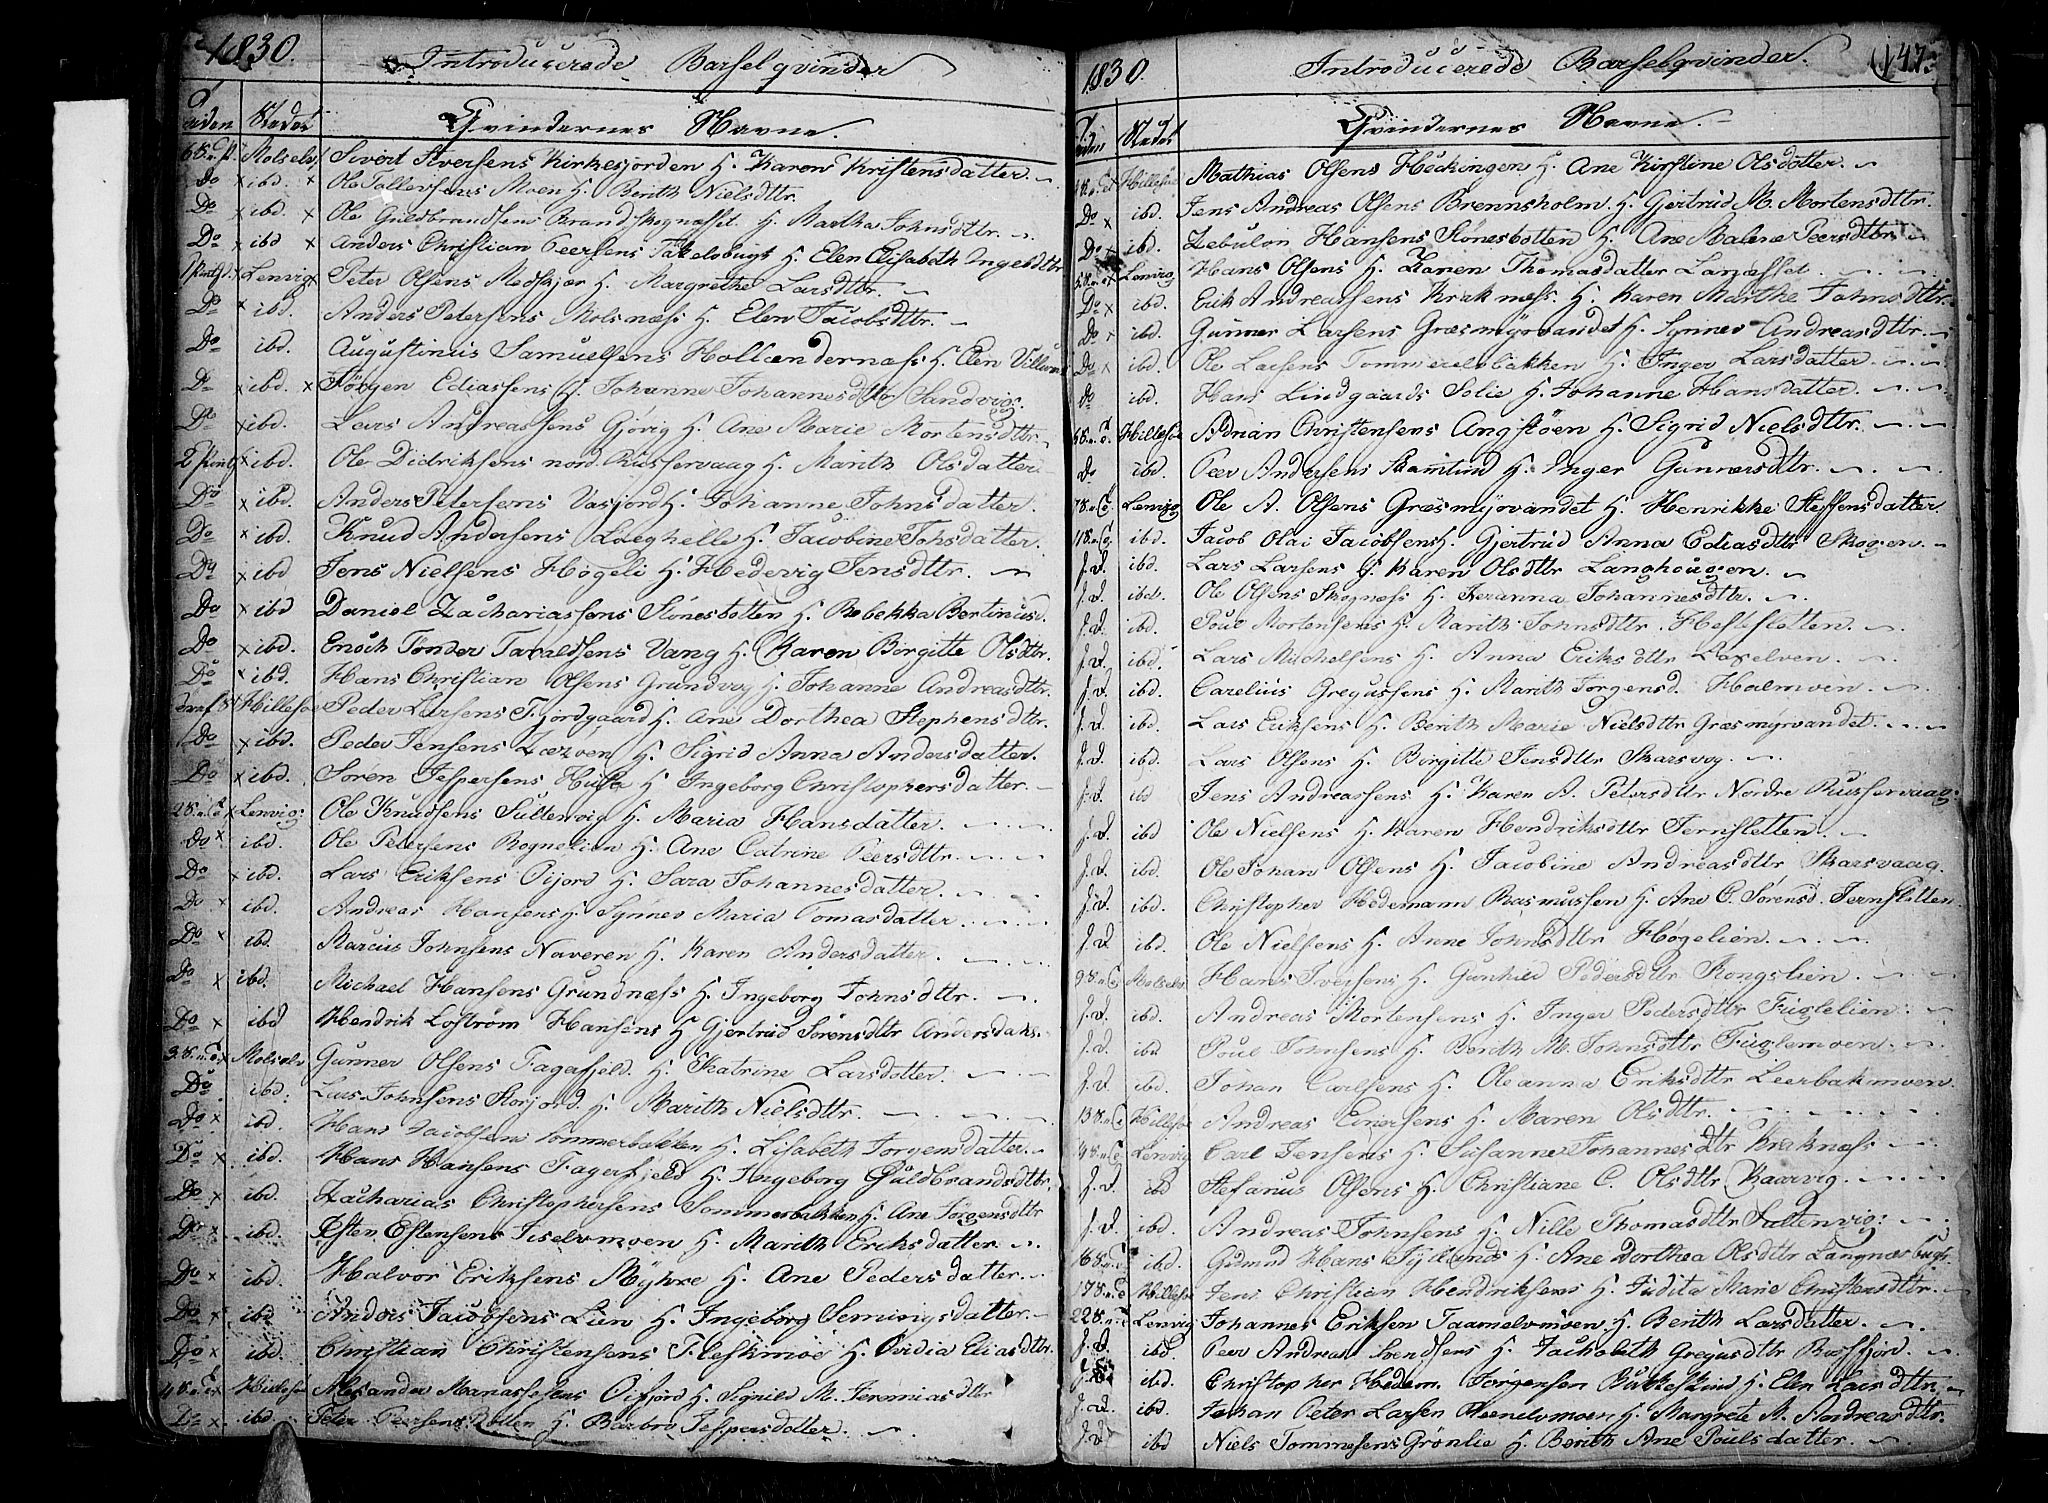 1830. Introducerede Barselqvinder
Tiden Stedet Qvindernes Navne.
Molselv. Sivert Iversens Kirkesjorden H. Karen Kristensdatter. ~
Do x ibd. x Ole Tollevsens Moen H. Berith Nielsdttr.
Do x ibd. x Ole Guldbrandsens Brandskognæsset H. Martha Johnsdttr. ~
Do x ibd x Anders Christian Peersens Takelvbugt H. Elen Elisabeth Ingebdttr
Lenvig x Peter Olsens Medskjær H. Margrethe Larsdttr. ~
Do x ibd. Anders Petersens Molsnæss H. Elen Jacobsdttr. ~
Do ibd. Augustinus Samuelsens Hollendernæss H. Elen
Do x ibd. x Jörgen Ediassens H. Johanne Johannesdttr Sandvig:
Do x ibd. Lars Andreassens Gjövig H. Ane Marie Mortensdttr.
2 Pints x ibd. Ole Didriksens nord. Russervaag H. Marith Olsdatter.
Do x ibd. Anders Petersens Vasjord H. Johanne Johnsdatter.
Do x ibd. Knud Andersens Laeghelle H. Jacobine Johsdatter.
Do x ibd Jens Nielsens Högeli H. Hedevig Jensdttr. ~
Do x ibd Daniel Zachariassens Sönesbotten H. Rebekka Bertinusd.
Do x ibd. Enoch Tönder Taraldsens Vang H. Karen Birgitte Olsdttr.
Do x ibd. Hans Christian Olsens Grundvog H. Johanne Andreasdttr.
Hillesöe Peder Larsens Fjordgaard H. Ane Dorthea Stephensdttr.
Do x ibd. Peder Jensens H. Sigrid Anna Andersdatter.
Do x ibd. Sören Jespersens H. Ingeborg Christophersdatter. ~
Lenvig: Ole Knudsens Sultenvig H. Maria Hansdatter. ~
Do x ibd. Ole Petersens Rognelien H. Ane Catrine Peersdttr. ~
Do x ibd. Lars Eriksens Oijord H. Sara Johannesdatter. ~
Do x ibd. Andreas Hansens H. Synnev Maria Tomasdatter. ~
Do x ibd. Marcus Johnsens Naveren H. Karen Andersdatter.
Do x ibd. Michael Hansens Grundnæss H. Ingeborg Johnsdttr. ~
Do x ibd Hendrik Loström Hansens H Gjertrud Sörensdttr Andersdaks.
Molselv Gunner Olsens Fagerfjeld. H. Katrine Larsdatter. ~
Do ibd. Lars Johnsens Storjord. H. Marith Nielsdttr. ~
Do x ibd. Hans Jacobsens Sommerbakken H. Lisabeth Jorgensdatter. ~
Do x ibd. Hans Hansens Fagerfjeld H. Ingeborg Guldbrandsdttr.
Do x ibd. Zacharias Christophersens Sommerbakken H. Ane Jörgensdttr
Do x ibd. Östen Estensens Iiselvmoen H. Marith Eriksdatter. ~
Do x ibd. Halvor Eriksens Myhre H. Ane Pedersdatter. ~
Do x ibd Anders Jacobsens Lien H. Ingeborg Semingsdatter. ~
Do x ibd. Christian Christensens Fleskmoe H. Ovidia Eliasdttr.
Hillesöe Alexander Manassesens Oifjord H. Signild M. Jeremiasdttr
Do x ibd. Peter Peersens Botten H. Barbro Jespersdatter. ~
1830. Introducerede Barselqvinder. 147.
Tiden Stedet Qvindernes Navne. ~
Hillesöe Mathias Olsens Hekkingen H. Ane Kirstine Olsdatter. ~
Do x ibd. Jens Andreas Olsens Brennsholm. H. Gjertrud M. Mortensdttr.
Do x ibd. Zebulon Hansens Stönesbotten H. Ane Malene Peersdttr. ~
Lenvig Hans Olsens H. Karen Thomasdatter Larnæsset. ~
Do x ibd. Erik Andreassens Kraknæss. H. Karen Marthe Johnsdttr.
Do x ibd. Gunner Larsens Græsmyrvandet H. Synnev Andreasdttr. ~
Do x ibd. Ole Larsens Tommerelsbakken H. Inger Larsdatter. ~
Do ibd. Hans Lindgaards Solie H. Johanne Hansdatter. ~
Hillesöe Adrian Christensens Angstöen H. Sigrid Nielsdttr. ~
Do ibd. Peer Andersens H. Inger Gunnersdttr. ~
Lenvig Ole A. Olsens Græsmyrvandet H. Henrikke Steffensdatter.
ibd. Jacob Olai Jacobsens H. Gjertrud Anna Ediasdttr Skogen. ~
f. d. ibd. Lars Larsens H. Karen Olsdttr Langhaugen. ~
f. d. ibd. Ole Olsens Skognæss H. Johannesdttr. ~
f. d. ibd. Poul Mortensens H. Marith Johnsdttr. Hestsletten. ~
f. d. ibd. Lars Michelsens H. Anna Eriksdttr Laxelven. ~
f. d. ibd. Carelius Gregussens H. Marith Jorgensd. Holmoen ~
f. d. ibd. Lars Eriksens H. Berith Marie Nielsdttr Græsmyrvandet. ~
f. d. ibd. Lars Olsens H. Birgitte Jensdttr Skarsvog. ~
f. d. ibd Jens Andreassens H. Karen A. Petersdttr Nordre Russervaag:
f. d. ibd Ole Nielsens H. Karen Hendriksdttr Jernsletten. ~
f. d. ibd. Ole Johan Olsens H. Jacobine Andreasdttr Skarsvaag.
f. d. ibd. Christopher Hedemann Rasmussen H. Ane C. Sörensd. Jernsletten.
f. d. ibd. Ole Nielsens H. Anne Johnsdttr Högelien. ~
Molselv Hans Iversens H. Gunhild Pedersdttr Kongslien ~
f. d. ibd. Andreas Mortensens H. Inger Pedersdttr Fuglelien. ~
f. d. ibd Poul Johnsens H. Berith M. Johnsdttr Fuglemoen ~
f. d. ibd. Johan Carlsens H. Oleanna Eriksdttr Leerbakmoen.
Hillesöe Andreas Einersens H. Maren Olsdttr. ~
Lenvig Carl Jensens H. Susanne Johannesdttr Kraknæss ~
f. d. ibd Stefanus Olsens H. Christiane C. Olsdttr Kaarvig. ~
f. d. ibd. Andreas Johnsens H. Nille Thomasdttr Sultenvig: ~
ibd. Gudmund Hans H. Ane Dorthea Olsdttr Langnæsbugt.
Hillesöe Jens Christian Hendriksens H. Judita Marie Christensdttr. ~
Lenvig Johannes Eriksen Taamelvmoen. H. Berith Larsdatter. ~
f. d. ibd. Peer Andreas Srendsens H. Jachobith Gregusdttr Rossfjord. ~
ibd. Christopher Hedem. Jörgensen Bukkeskind H. Elen Larsdttr. ~
f. d. ibd. Johan Peter Larsen H. Margrete M. Andreasdttr.
f. d. ibd Niels Tommesens Grönlie H. Berith Ane Poulsdatter. ~